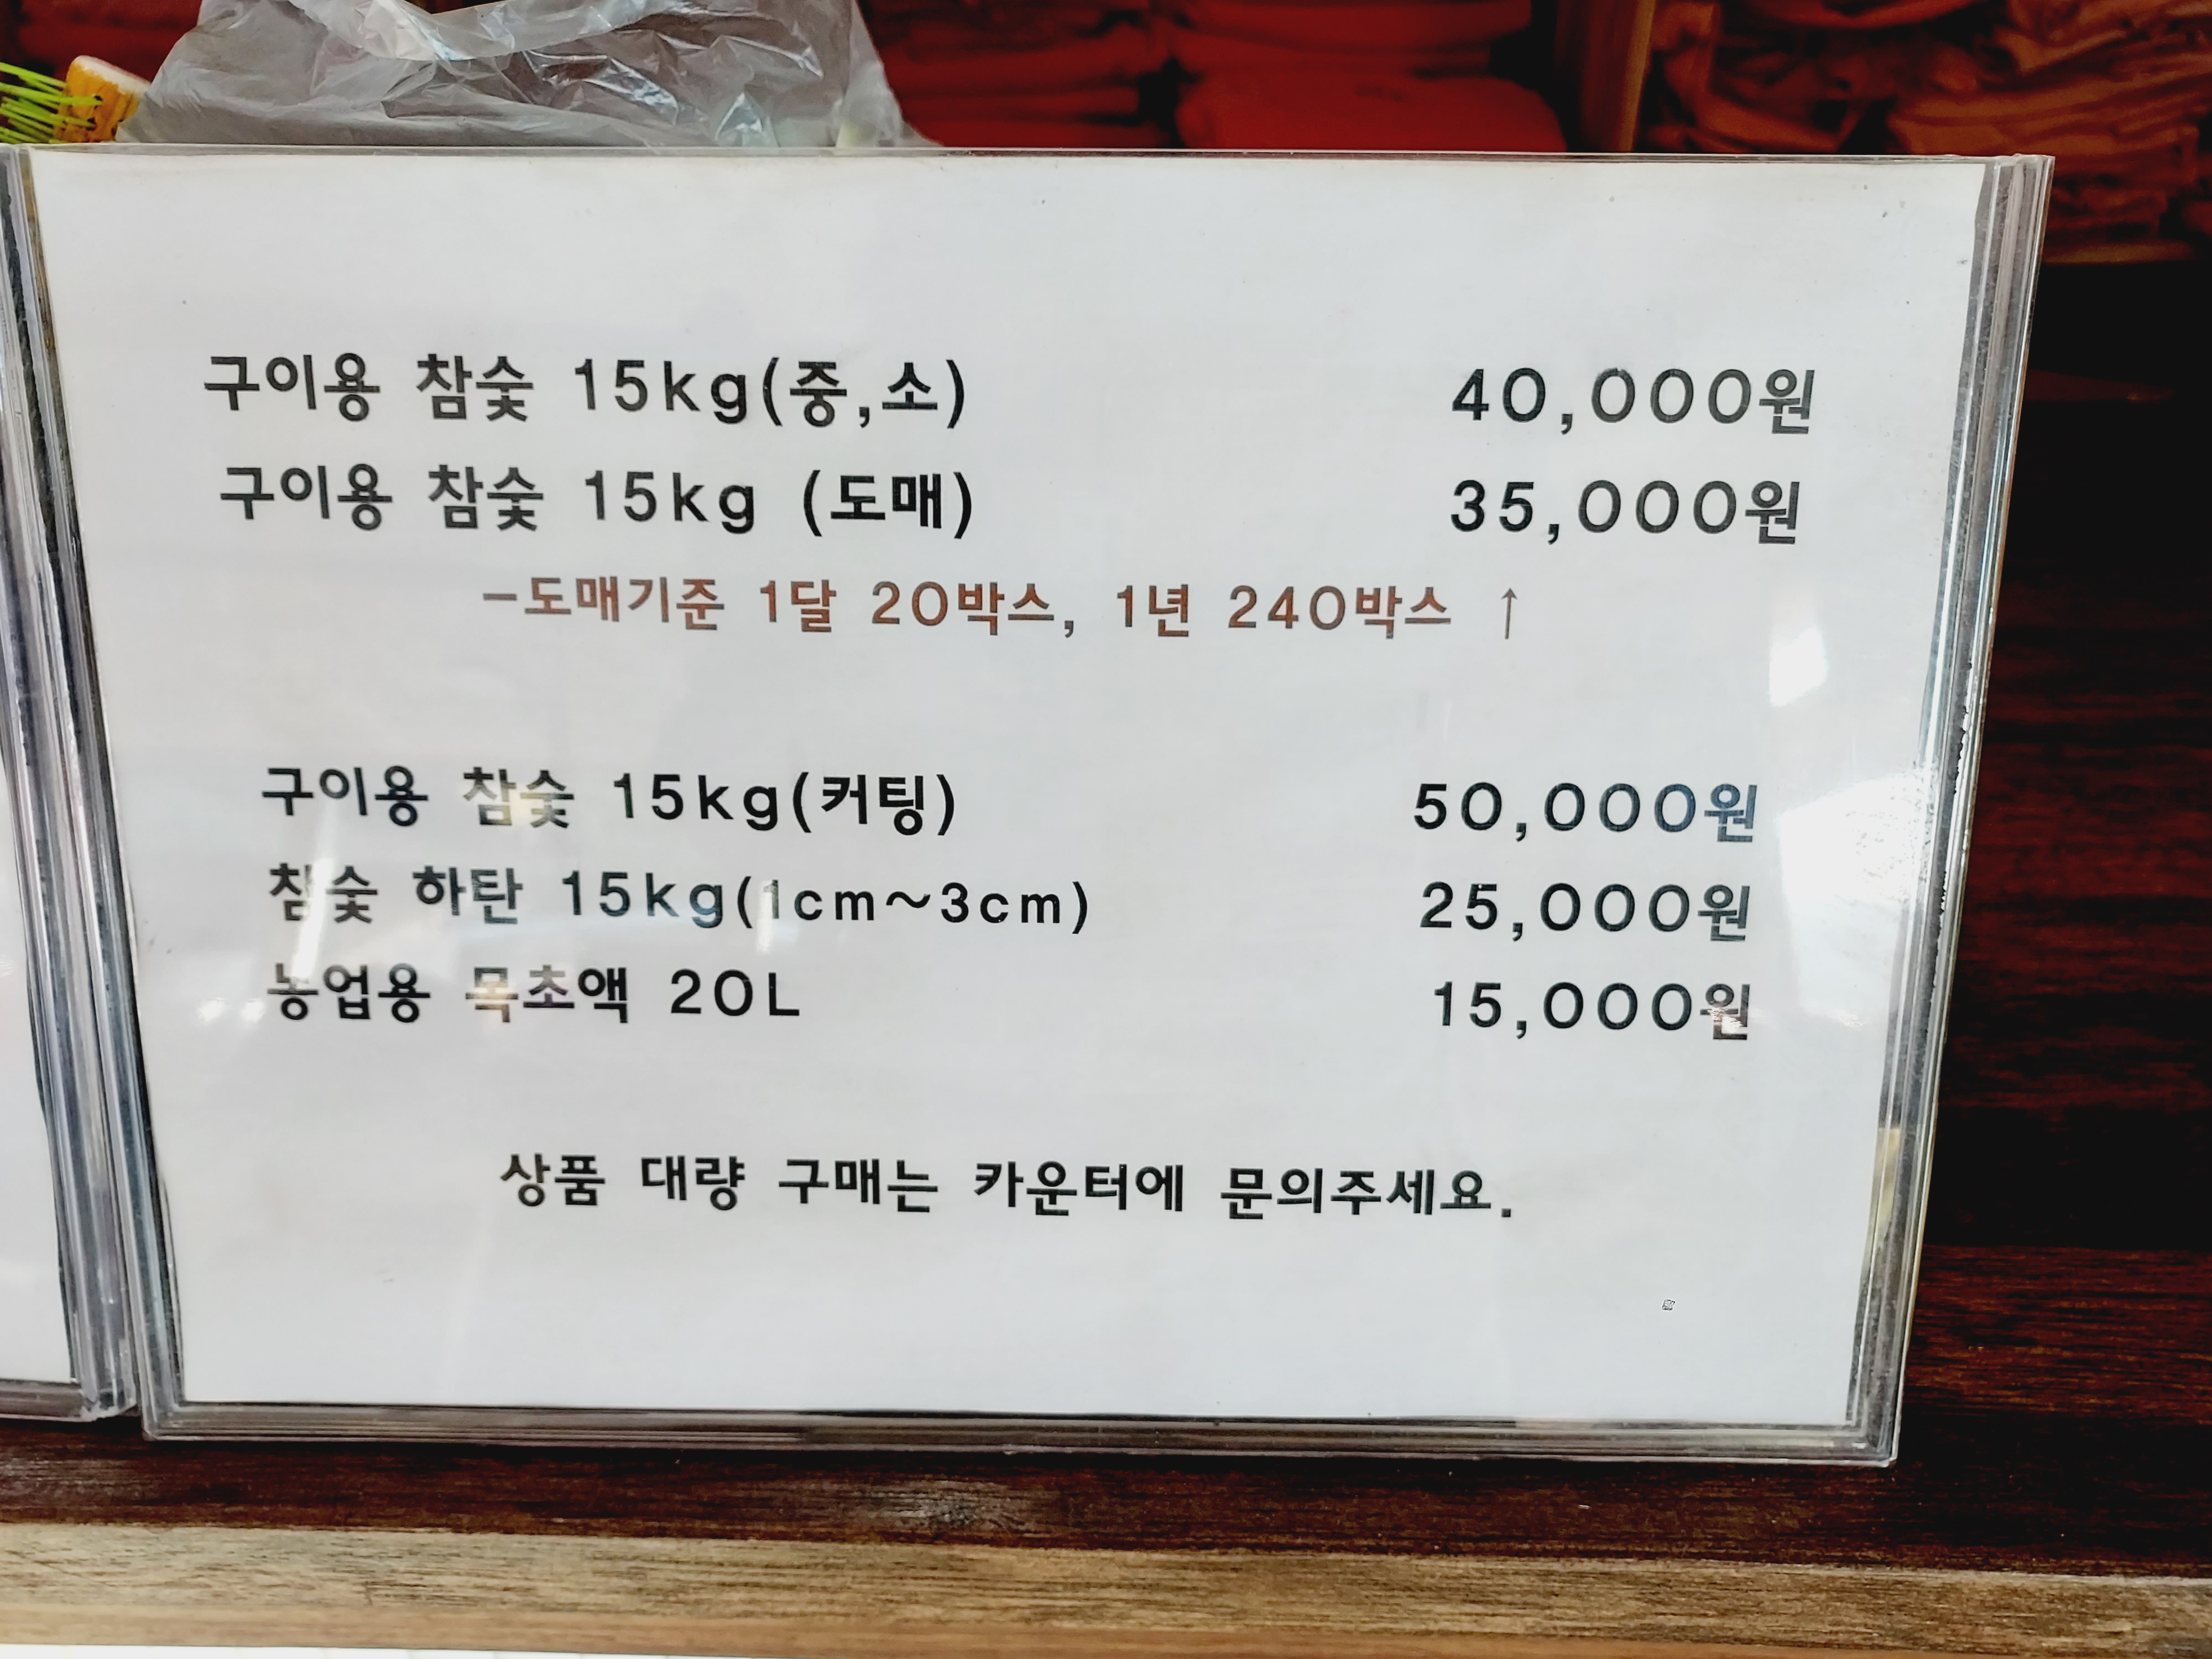 구이용 참숯 15kg(중,소) 40,000원
구이용 참숯 15kg (도매) 35,000원
-도매기준 1달 20박스, 1년 240박스 ↑
구이용 참숯 15kg(커팅) 50,000원
참숯 하탄 15kg(1cm~3cm) 25,000원
농업용 목초액 20L 15,000원
상품 대량 구매는 카운터에 문의주세요.